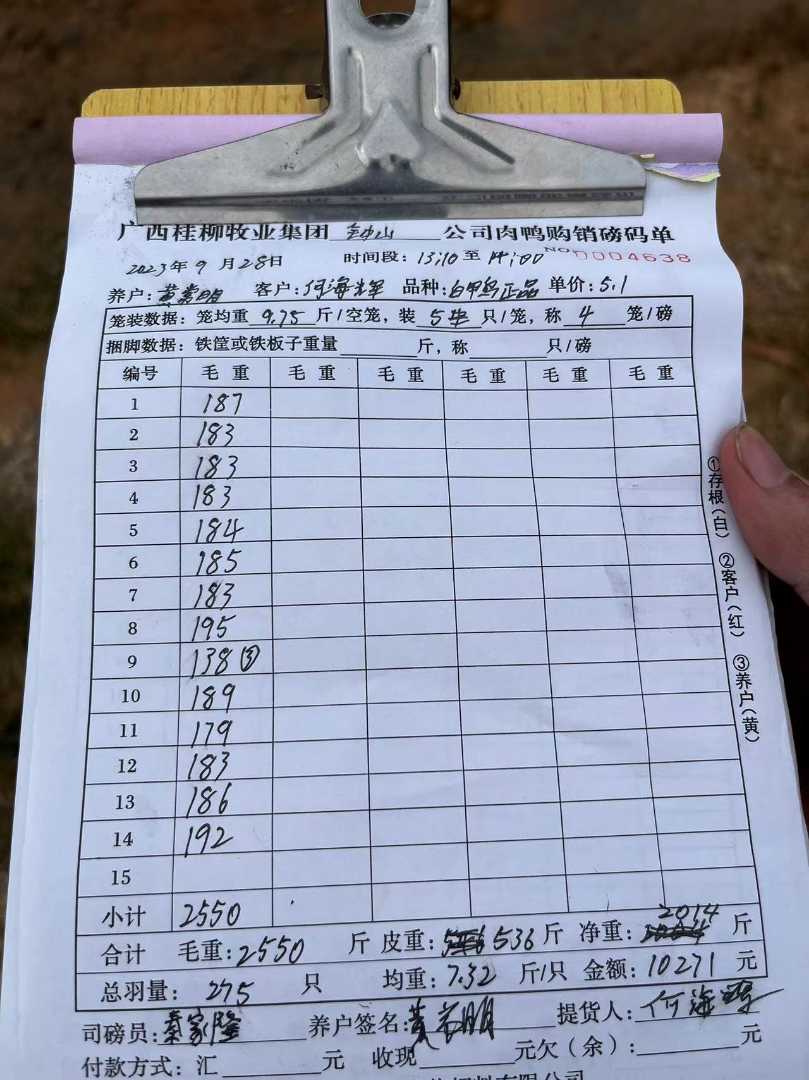 广西桂柳牧业集团 钟山 公司肉鸭购销磅码单
2023年9月28日 时间段：13:10至14:00 NO.0004638
养户：黄嵩明 客户：何海辉 品种：白甲鸟正品 单价：5.1
笼装数据：笼均重 9.75 斤/空笼，装 5 只/笼，称 4 笼/磅
捆脚数据：铁筐或铁板子重量 斤，称 只/磅
编号 毛重 毛重 毛重 毛重 毛重 毛重
1 187
2 183
3 183
4 183
5 184
6 185
7 183
8 195
9 138 ③
10 189
11 179
12 183
13 186
14 192
15
小计 2550
合计 毛重：2550 斤 皮重：536 斤 净重：2014 斤
总羽量：275 只 均重：7.32 斤/只 金额：10271 元
司磅员：秦家隆 养户签名： 提货人：何海
付款方式：汇 元 收现 元欠（余）： 元
①存根（白） ②客户（红） ③养户（黄）